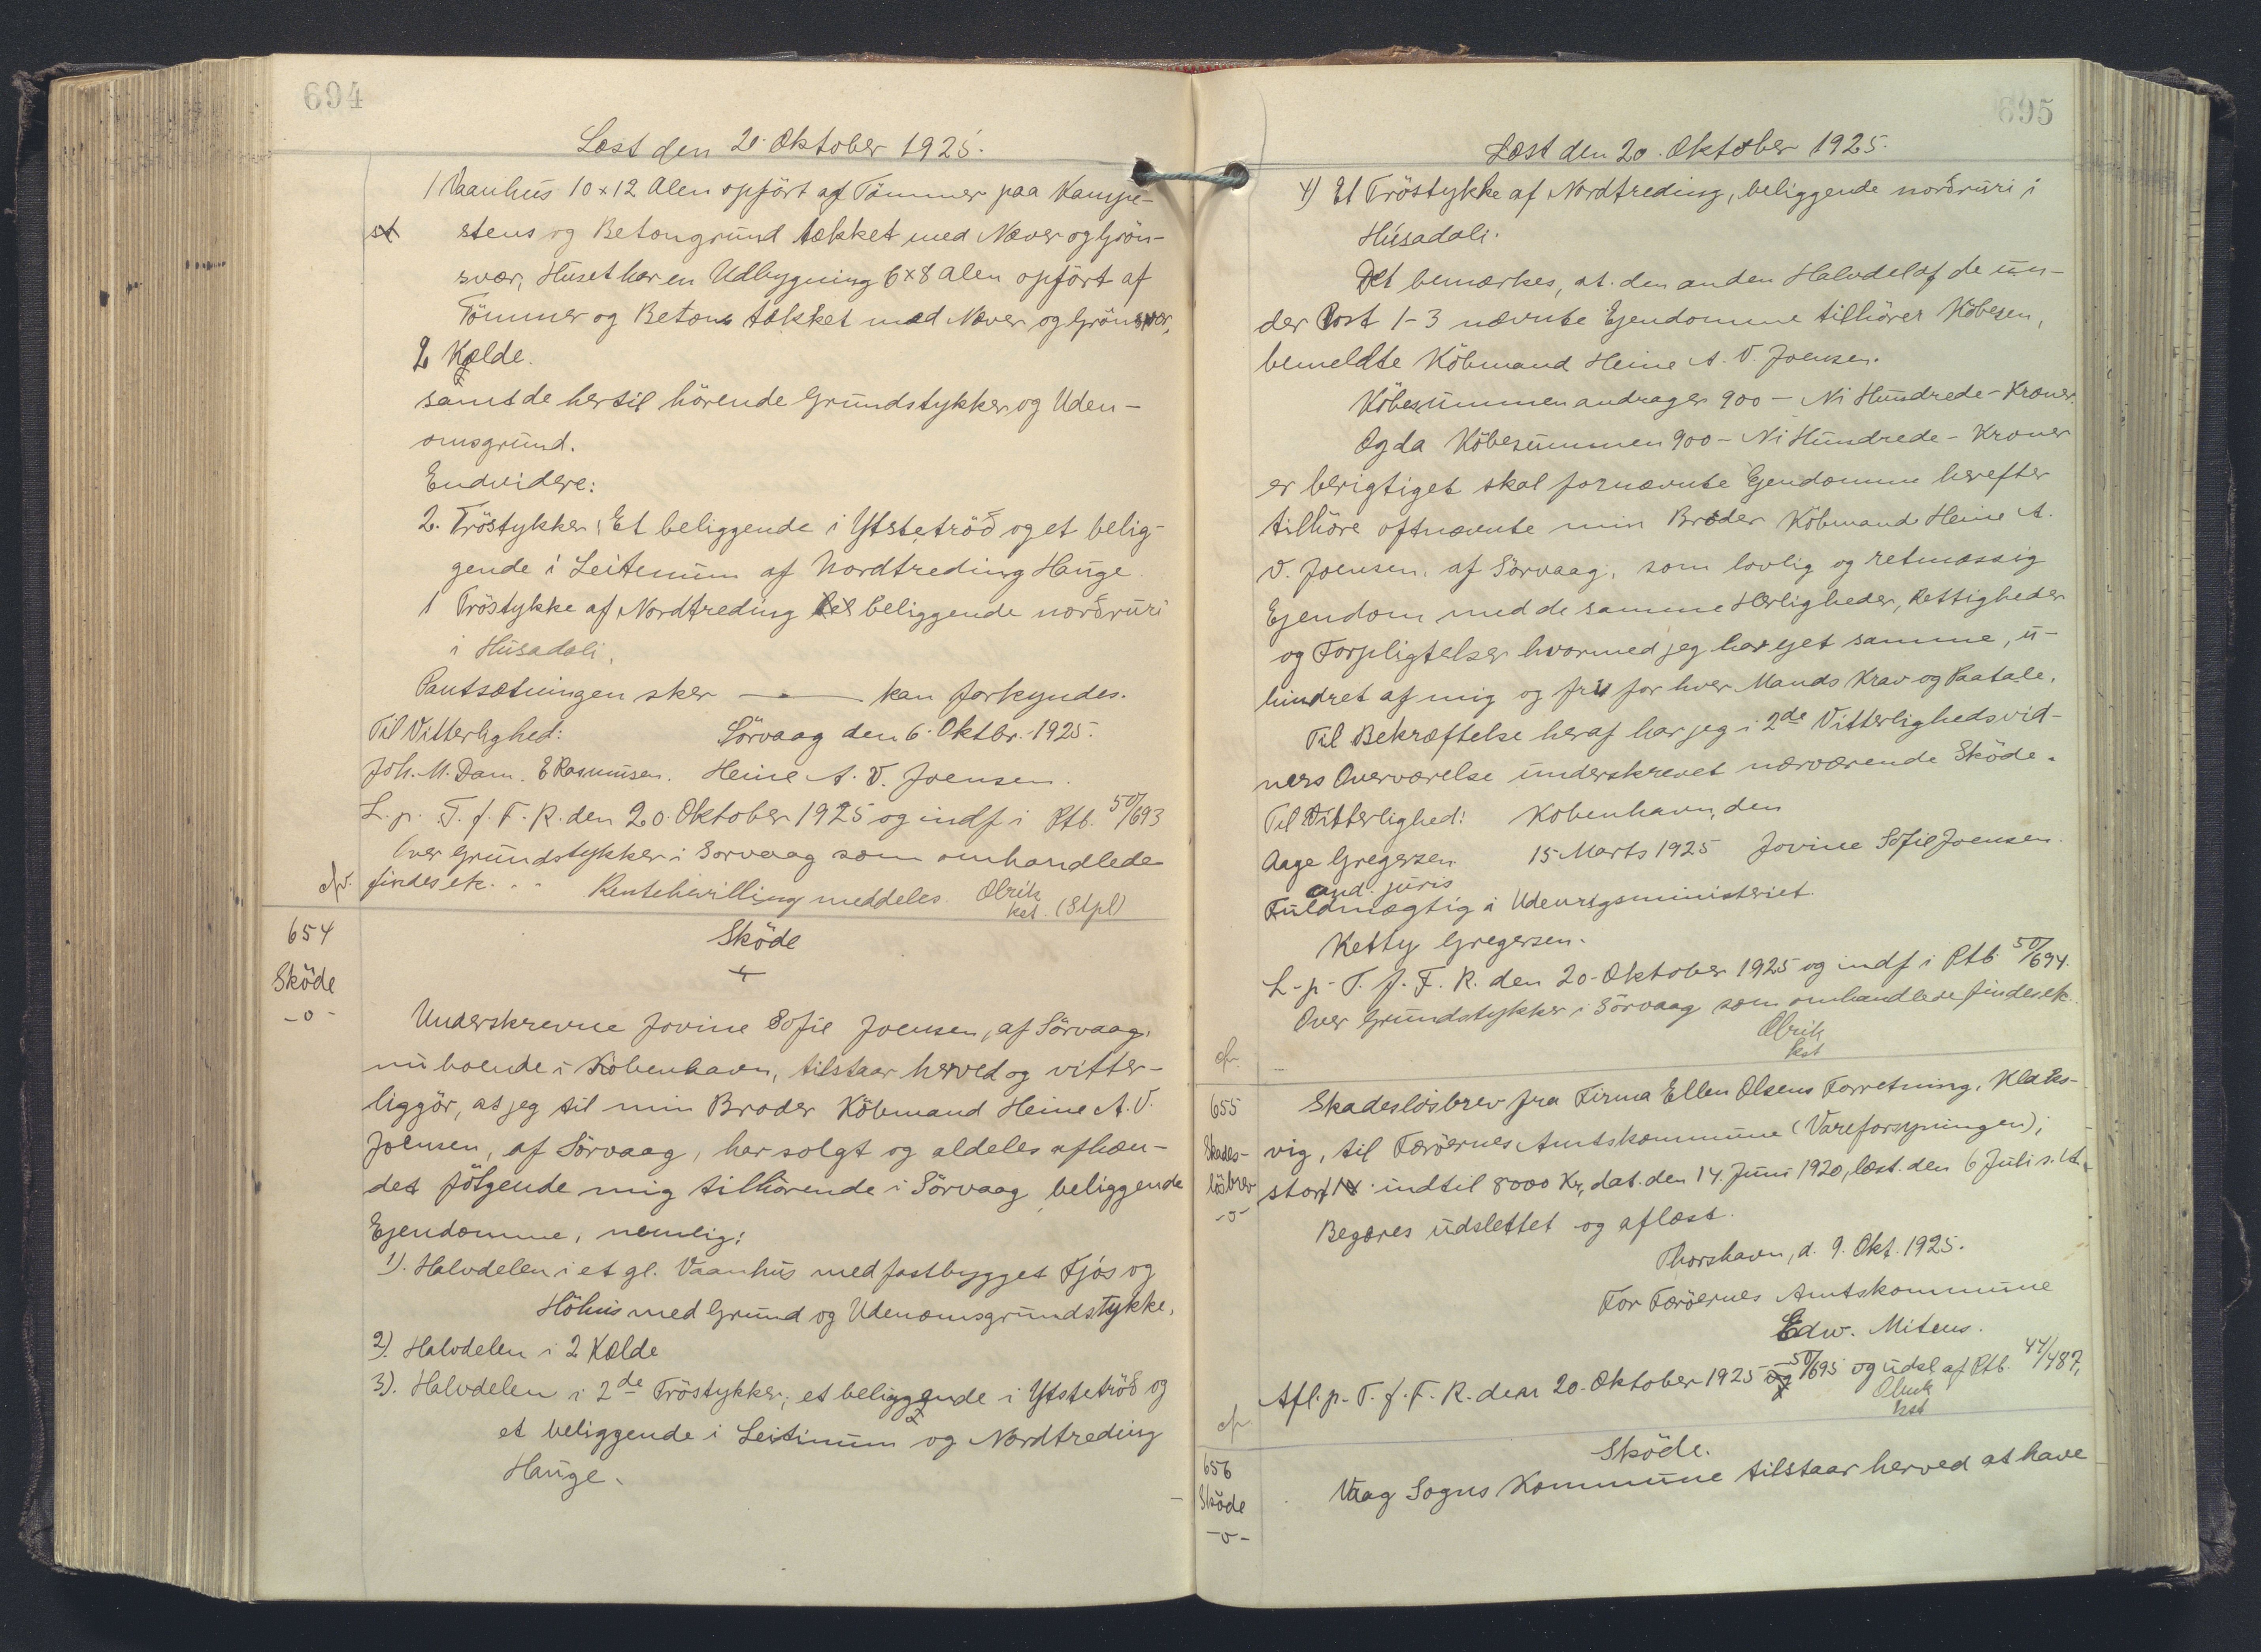 694
Læst den 20. Oktober 1925.
1 Vaanhus 10 x 12 Alen opført af Tømmer paa Kampe-
stens og Betongrund tækket med Næver og Grøn-
svær, Huset har en Udbygning 6 x 8 Alen opført af
Tømmer og Beton tækket med Næver og Grønsvær,
2 Kælde.
samt de hertil hörende Grundstykker og Uden-
omsgrund.
Endvidere:
2. Tröstykker, Et beliggende i Ytstetröð og et belig-
gende i Leitenum af Nordtreding Hauge
1 Tröstykke af Nordtreding beliggende norðruri
i Húsadali,
Pantsætningen sker — kan forkyndes.
Til Vitterlighed: Sörvaag den 6. Oktbr. 1925.
Joh. M. Dam. E Rasmussen. Heine A. V. Joensen.
L. p. T. f. F. R. den 20. Oktober 1925 og indf i Ptb. 50/693
Over Grundstykker i Sorvaag som omhandlede
findes ek. . . Rentehvilling meddeles. Olrik
kst. (Stpl)
654
Sköde
-o-
Sköde
Underskrevne Jovine Sofie Joensen, af Sörvaag,
nu boende i Kobenhavn, tilstaar herved og vitter-
liggör, at jeg til min Broder Köbmand Heine A. V.
Joensen, af Sörvaag, har solgt og aldeles afhæn-
det fölgende mig tilhörende i Sörvaag beliggende
Ejendomme, nemlig:
1). Halvdelen i et gl. Vaanhus med fastbygget Fjós og
Höhus med Grund og Udenomsgrundstykke,
2). Halvdelen i 2 Kælde
3). Halvdelen i 2de Tröstykker, et beliggende i Ytstetröð og
et beliggende i Leitinum og Nordtreding
Hauge.
695
Læst den 20. Oktober 1925.
4) Et Tröstykke af Nordtreding, beliggende norðruri i
Húsadali.
Det bemærkes, at den anden Halvdel af de un-
der Post 1-3 nævnte Ejendomme tilhörer Köberen,
bemeldte Köbmand Heine A. V. Joensen.
Köbesummen andrager 900 - Ni Hundrede - Kroner.
Og da Köbesummen 900 - Ni Hundrede - Kroner
er berigtiget skal fornævnte Ejendomme herefter
tilhöre oftnævnte min Broder Köbmand Heine A.
V. Joensen, af Sörvaag, som lovlig og retmæssig
Ejendom med de samme Herligheder, Rettigheder
og Forpligtelser hvormed jeg har ejet samme, u-
hindret af mig og fri for hver Mands Krav og Paatale.
Til Bekræftelse heraf har jeg i 2de Vitterlighedsvid-
ners Overværelse underskrevet nærværende Sköde.
Til Vitterlighed: Kobenhavn, den
Aage Gregersen 15 Marts 1925 Jovine Sofie Joensen.
cand. juris
Fuldmægtig i Udenrigsministeriet.
Ketty Gregersen.
L. p. T. f. F. R. den 20. Oktober 1925 og indf i Ptb. 50/694.
Over Grundstykker i Sörvaag som omhandlede findes ek.
Olrik
kst
655
Skades-
lösbrev
-o-
Skadeslösbrev fra Firma Ellen Olsens Forretning, Klaks-
vig, til Færöernes Amtskommune (Vareforsyningen),
stort indtil 8000 Kr, dat. den 14. Juni 1920, læst. den 6 Juli s. A.
Begæres udslettet og aflæst.
Thorshavn, d. 9. Okt. 1925.
For Færöernes Amtskommune
Edw. Mitens.
Afl. p. T. f. F. R. den 20. Oktober 1925 50/695 og udsl af Ptb. 44/487,
Olrik
kst
656
Sköde
-o-
Sköde.
Vaag Sogns Kommune tilstaar herved at have